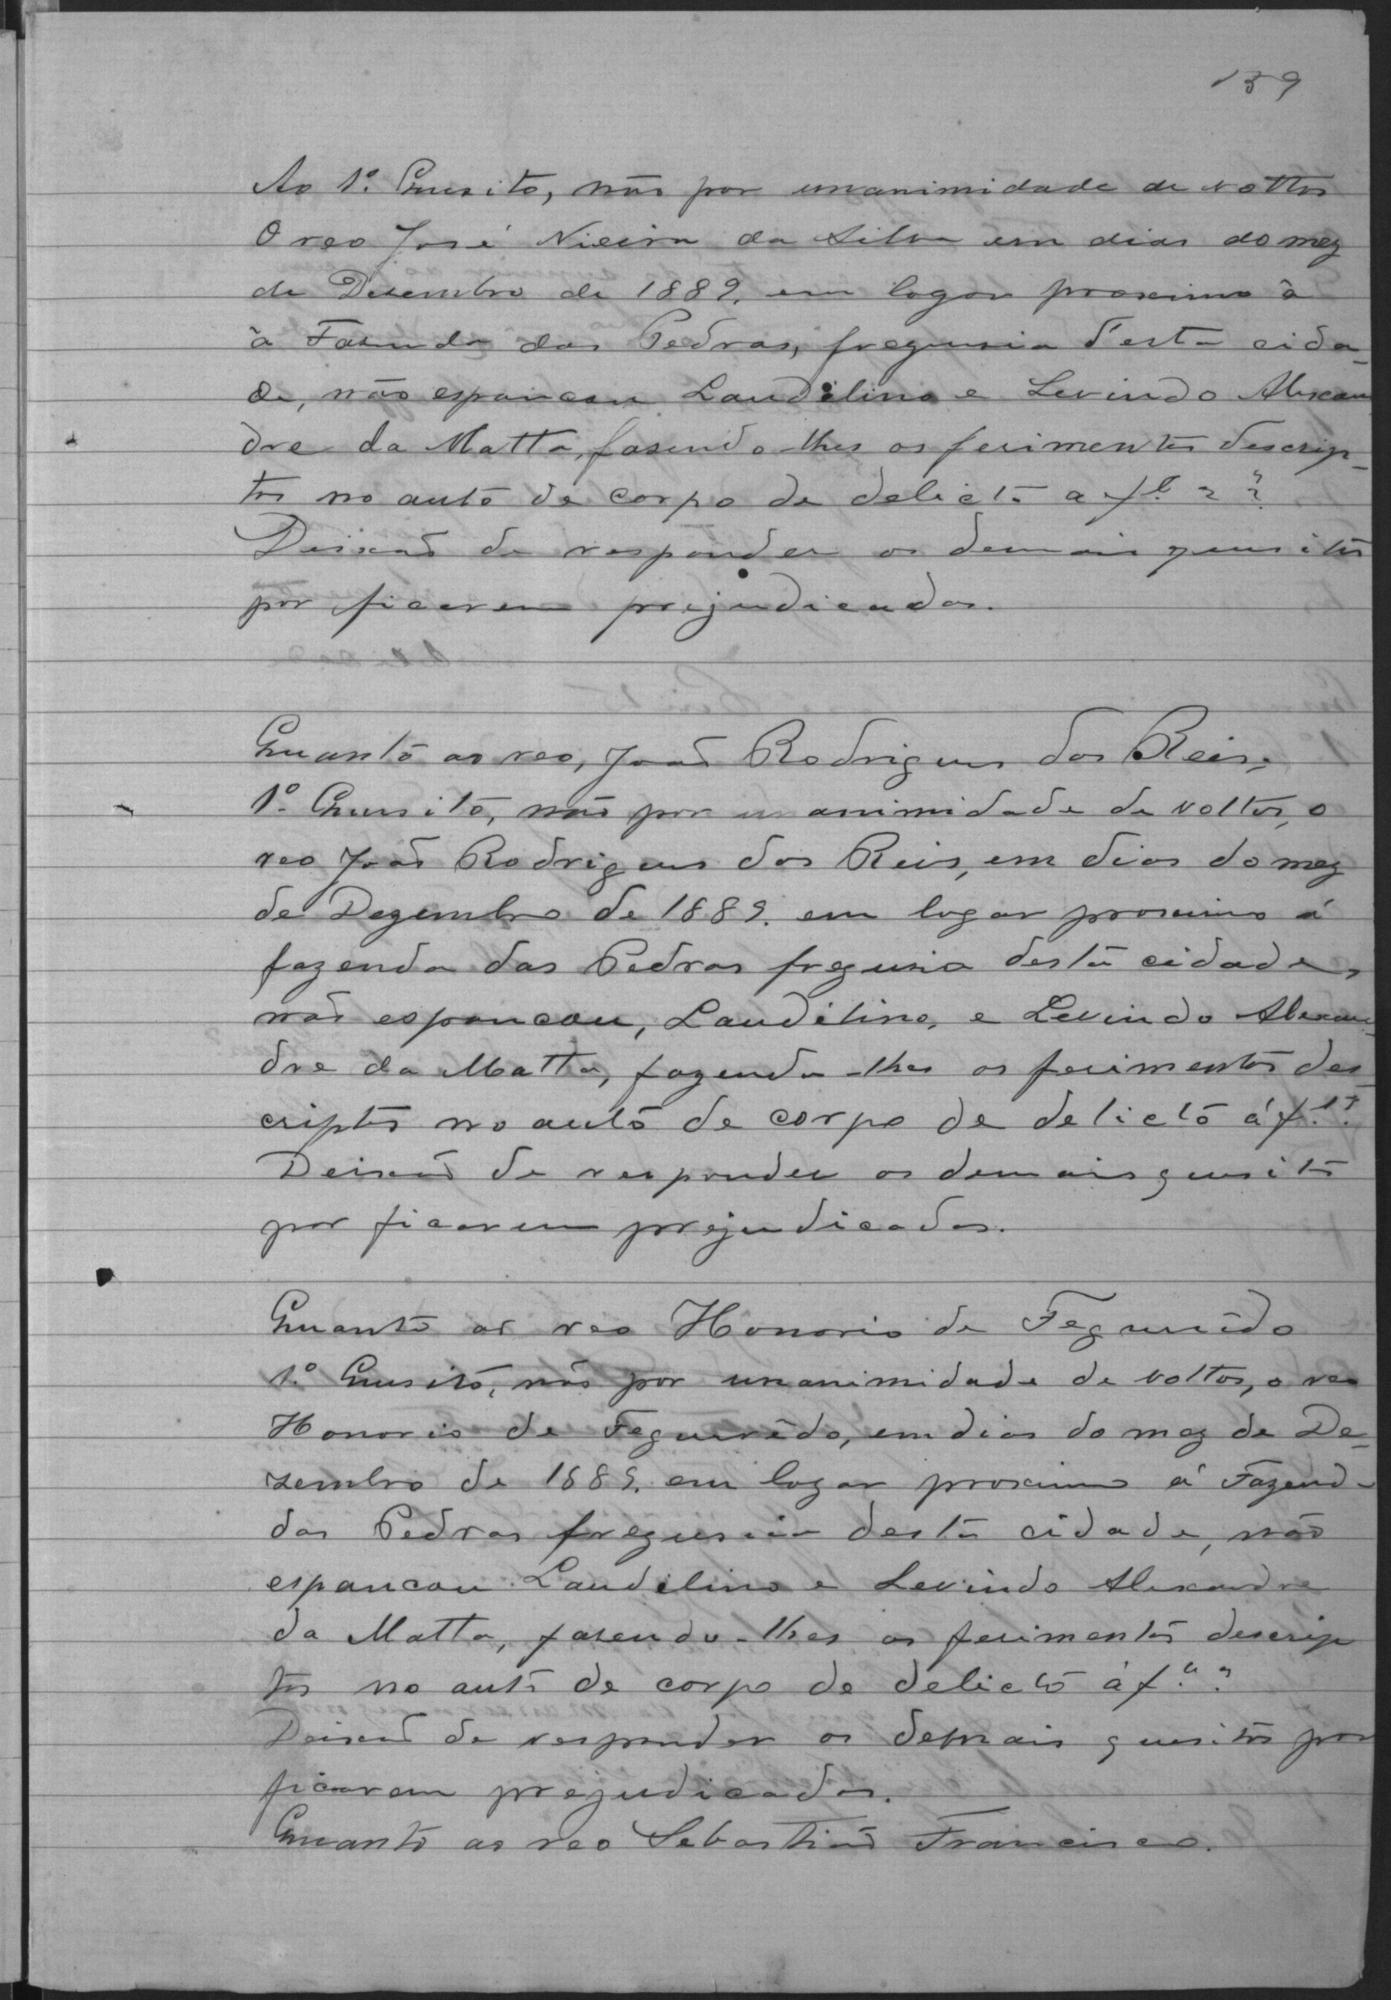 139
Ao 1º. Quesito, não por unanimidade de vottos
O reo José Vieira da Silva em dias do mez
de Desembro de 1889. em logar proximo à
à Fasenda das Pedras, freguesia d'esta cida-
de, não espancou Laudilino e Levindo Alexan
dre da Matta, fasendo-lhes os ferimentos descrip-
tos no auto de corpo de delicto a fl.
Deixão de responder os demais quesitos
por ficarem prejudicados.
Quanto ao reo, João Rodrigues dos Reis,
1º. Quesito, não por unanimidade de vottos, o
reo João Rodrigues dos Reis, em dias do mez
de Dezembro de 1889. em logar proximo á
fazenda das Pedras freguesia desta cidade,
não espancou, Laudilino, e Levindo Alexan-
dre da Matta, fazendo-lhes os ferimentos des-
criptos no auto de corpo de delicto á f.
Deixão de responder os demais quesitos
por ficarem prejudicados.
Quanto ao reo Honorio de Feguerêdo
1º. Quesito, não por unanimidade de vottos, o reo
Honorio de Feguerêdo, em dias do mez de De-
zembro de 1889. em logar proximo á Fazenda
das Pedras freguesia desta cidade, não
espancou Laudilino e Levindo Alexandre
da Matta, fasendo-lhes os ferimentos descrip
tos no auto de corpo de delicto à f.
Deixão de responder os demais quesitos por
ficarem prejudicados.
Quanto ao reo Sebastião Francisco.